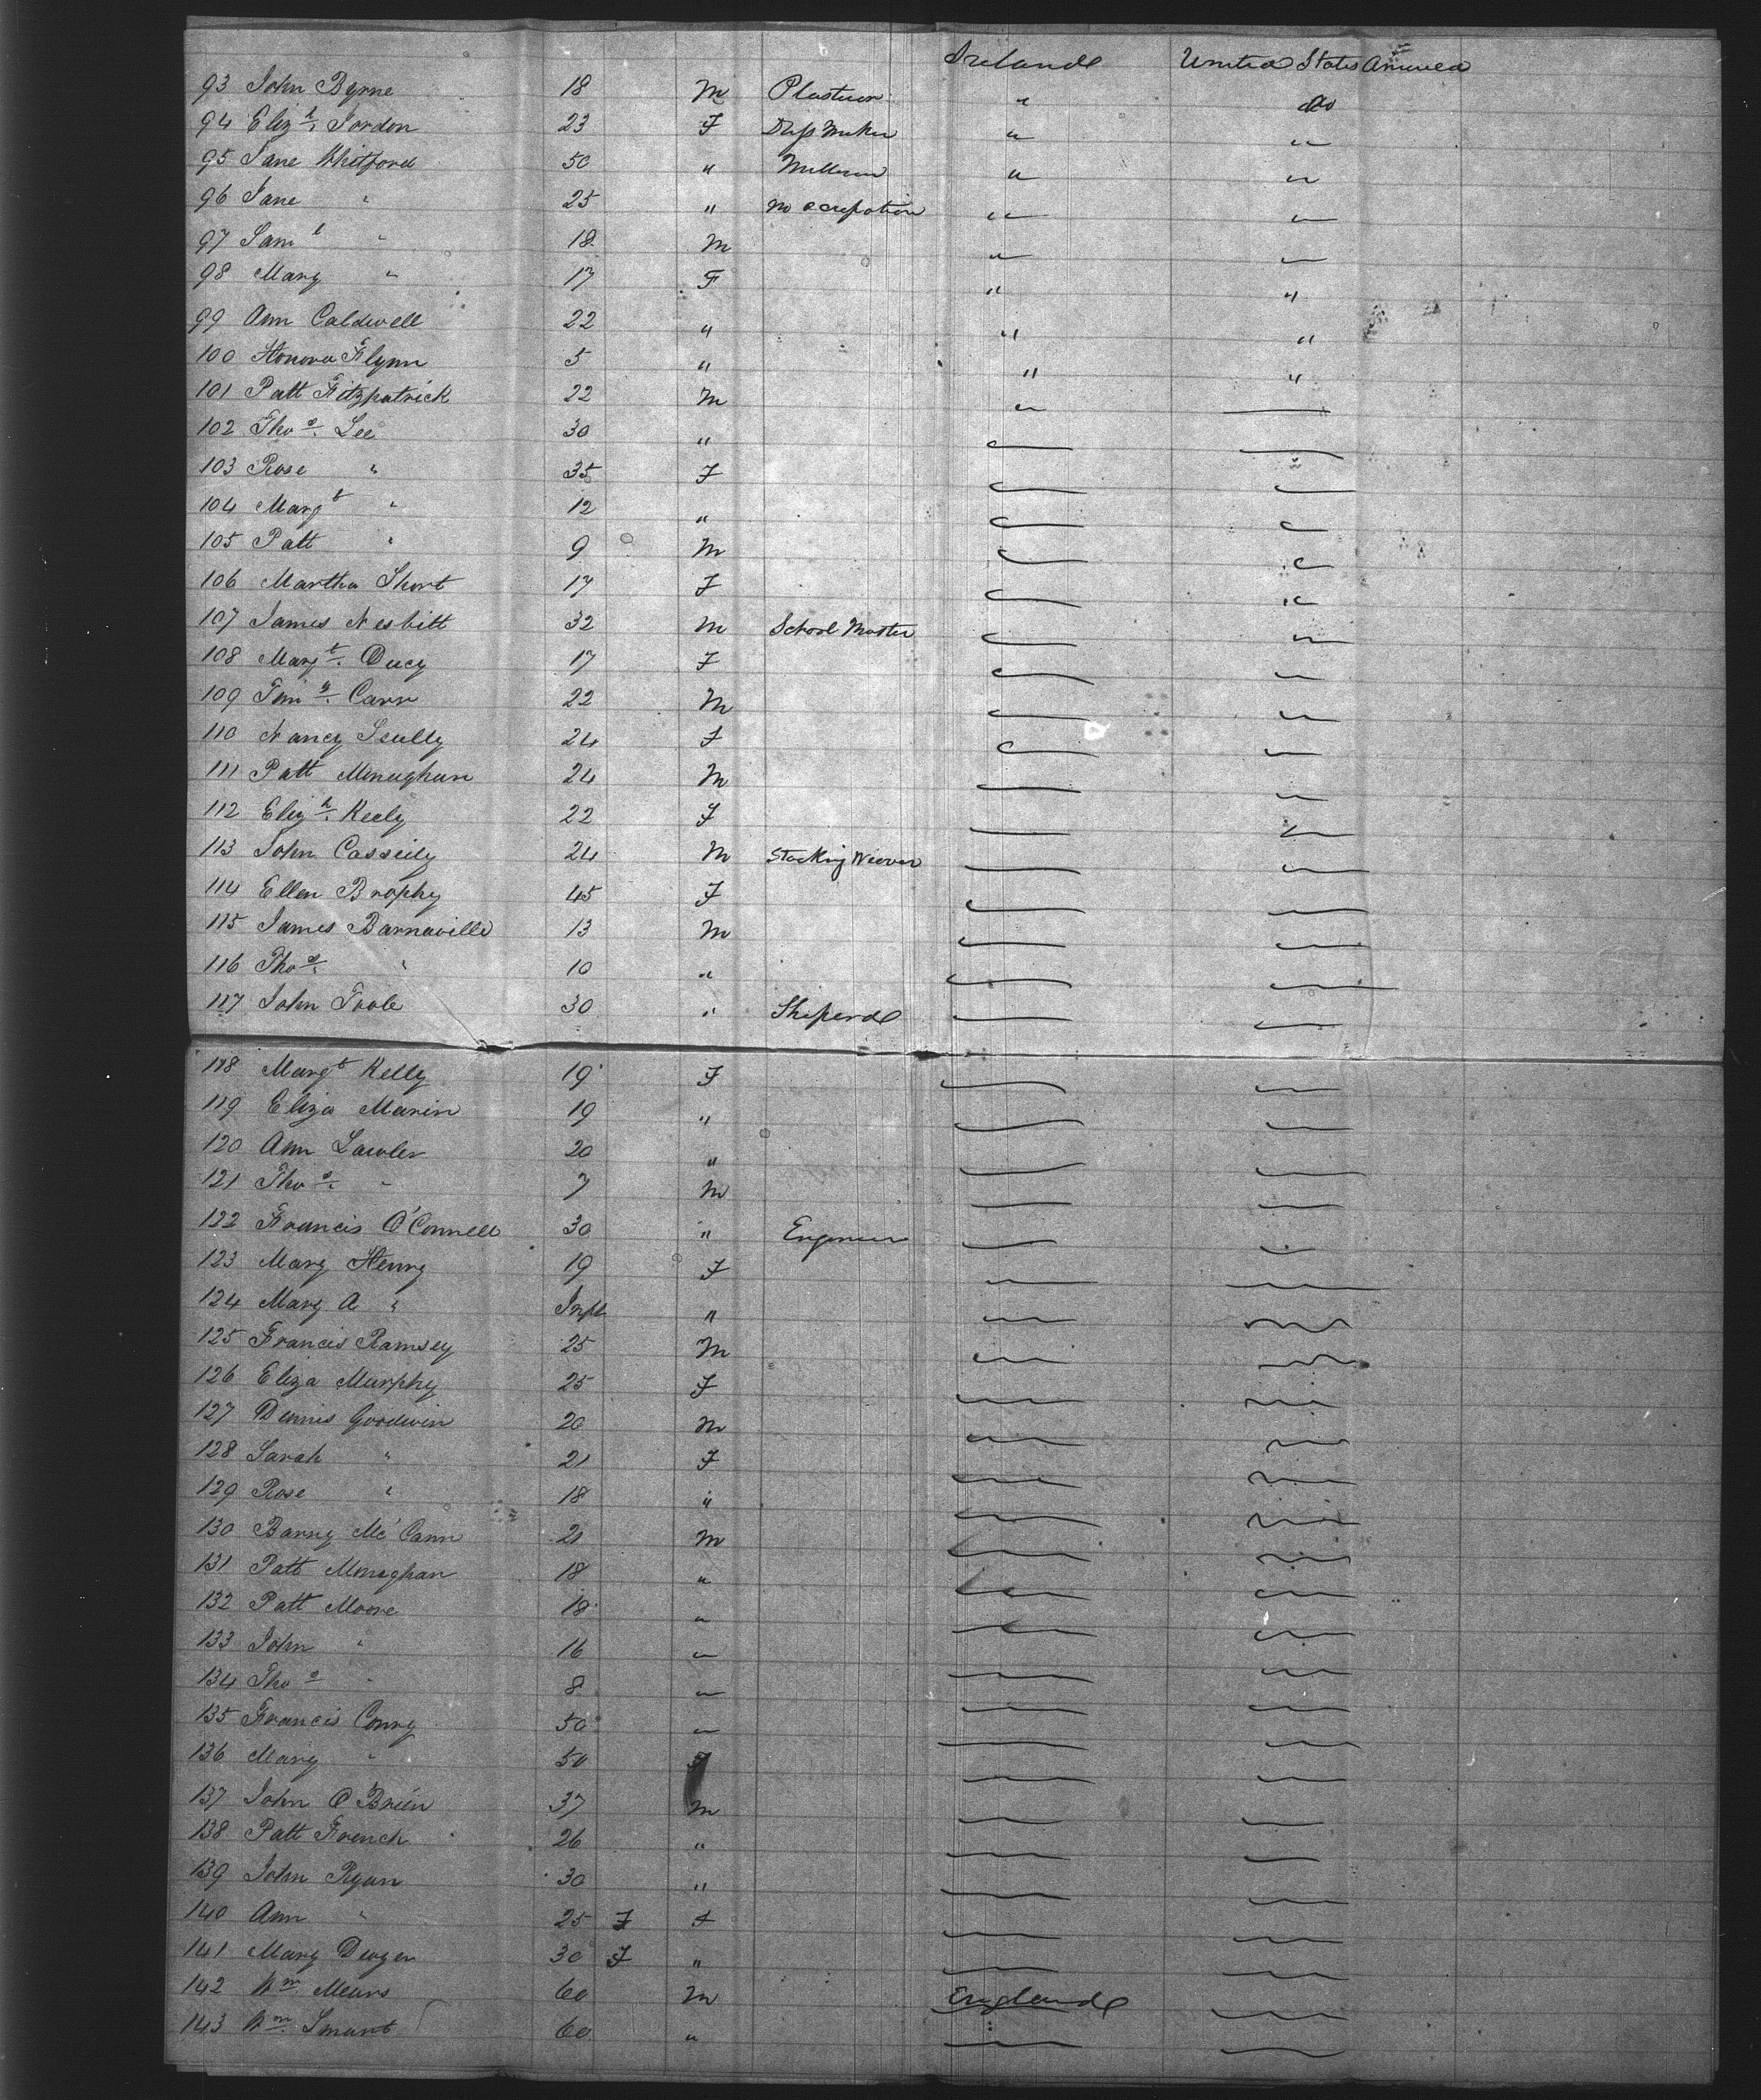 Ireland United States America
93 John Byrne 18 M Plasterer " do
94 Eliz h. Jordon 23 F Dress Maker " "
95 Jane Whitford 50 " " "
96 Jane " 25 " no occupation " "
97 Sam l " 18 M " "
98 Mary " 17 F " "
99 Ann Caldwell 22 " " "
100 Honora Flynn 5 " " "
101 Patt Fitzpatrick 22 M "
102 Tho s. Lee 30 "
103 Rose " 35 F
104 Marg t " 12 "
105 Patt " 9 M
106 Martha Short 17 F
107 James Nesbitt 32 M School Master
108 Marg t. Ducy 17 F
109 Tim y. Carr 22 M
110 Nancy Scully 24 F
111 Patt Minaghan 24 M
112 Eliz h. Keely 22 F
113 John Casseily 24 M Stocking Weaver
114 Ellen Brophy 45 F
115 James Barnaville 13 M
116 Tho s. " 10 "
117 John Toole 30 " Sheperd
118 Marg t Kelly 19 F
119 Eliza Marin 19 "
120 Ann Lawler 20 "
121 Tho s. " 7 M
122 Francis O'Connell 30 " Engineer
123 Mary Henry 19 F
124 Mary A " Inft "
125 Francis Ramsey 25 M
126 Eliza Murphy 25 F
127 Dennis Goodwin 20 M
128 Sarah " 21 F
129 Rose " 18 "
130 Barny McCann 21 M
131 Patt Monaghan 18 "
132 Patt Moore 18 "
133 John " 16 "
134 Tho s " 8 "
135 Francis Conry 50 "
136 Mary " 50 F
137 John O'Brien 37 M
138 Patt French 26 "
139 John Ryan 30 "
140 Ann " 25 F F
141 Mary Dwyer 30 F "
142 Wm. Mears 60 M England
143 Wm. Smart 60 "